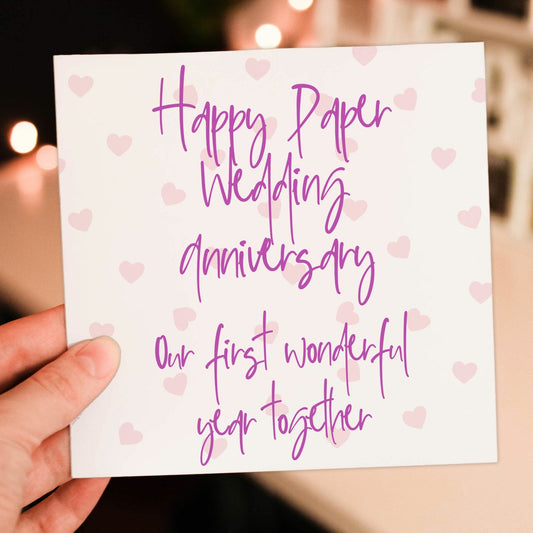 Happy Paper
Wedding
anniversary
Our first wonderful
year together